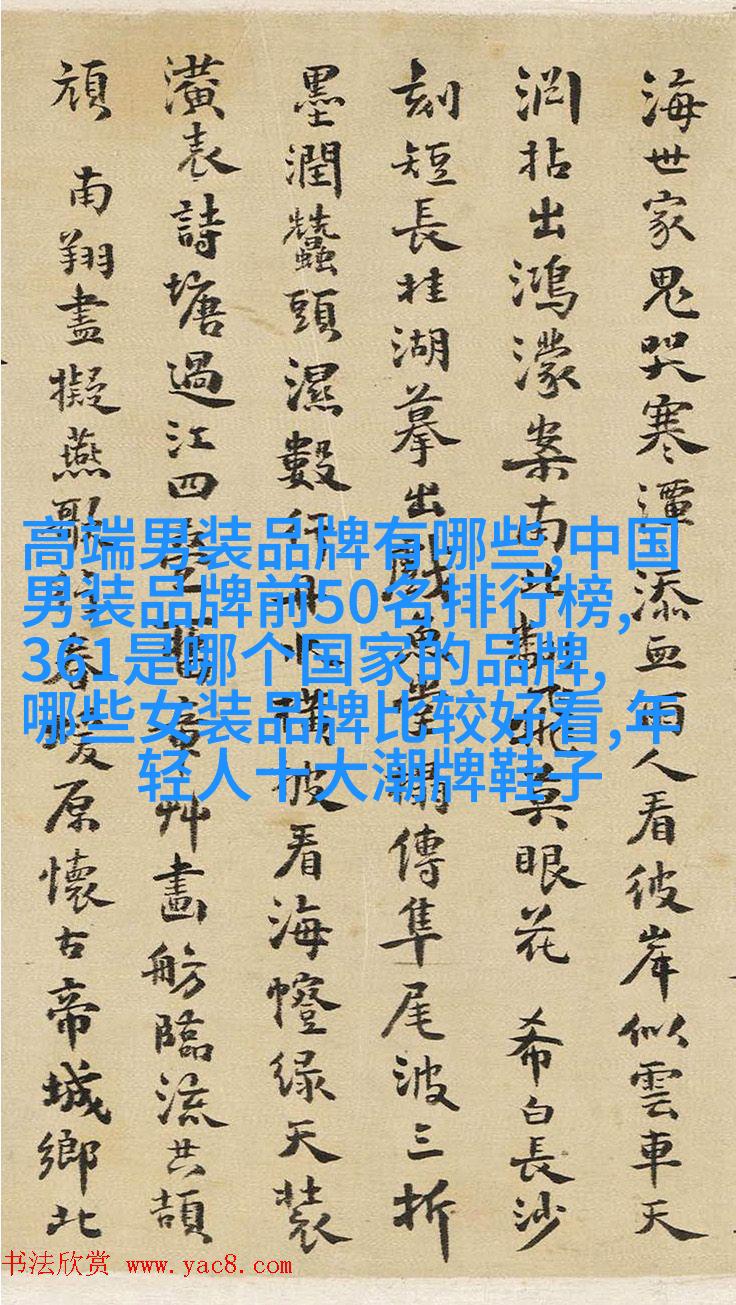 海世家鬼哭寒潭添血雨人看彼岸似雲車天
拈出鴻濛案南飛莫眼花 希白長沙
刻短長桂湖摹出戲魚傳隼尾波三折
墨潤蠶頭濕數行橫披看海幢绿天裝
潢表詩塘過江四艸畫舫臨流共頡
頏 南翔盡擬燕歌春暖原懷古帝城鄉北
高端男装品牌有哪些,中国
男装品牌前50名排行榜,
361是哪个国家的品牌,
哪些女装品牌比较好看,年
轻人十大潮牌鞋子
书法欣赏 www.yac8.com